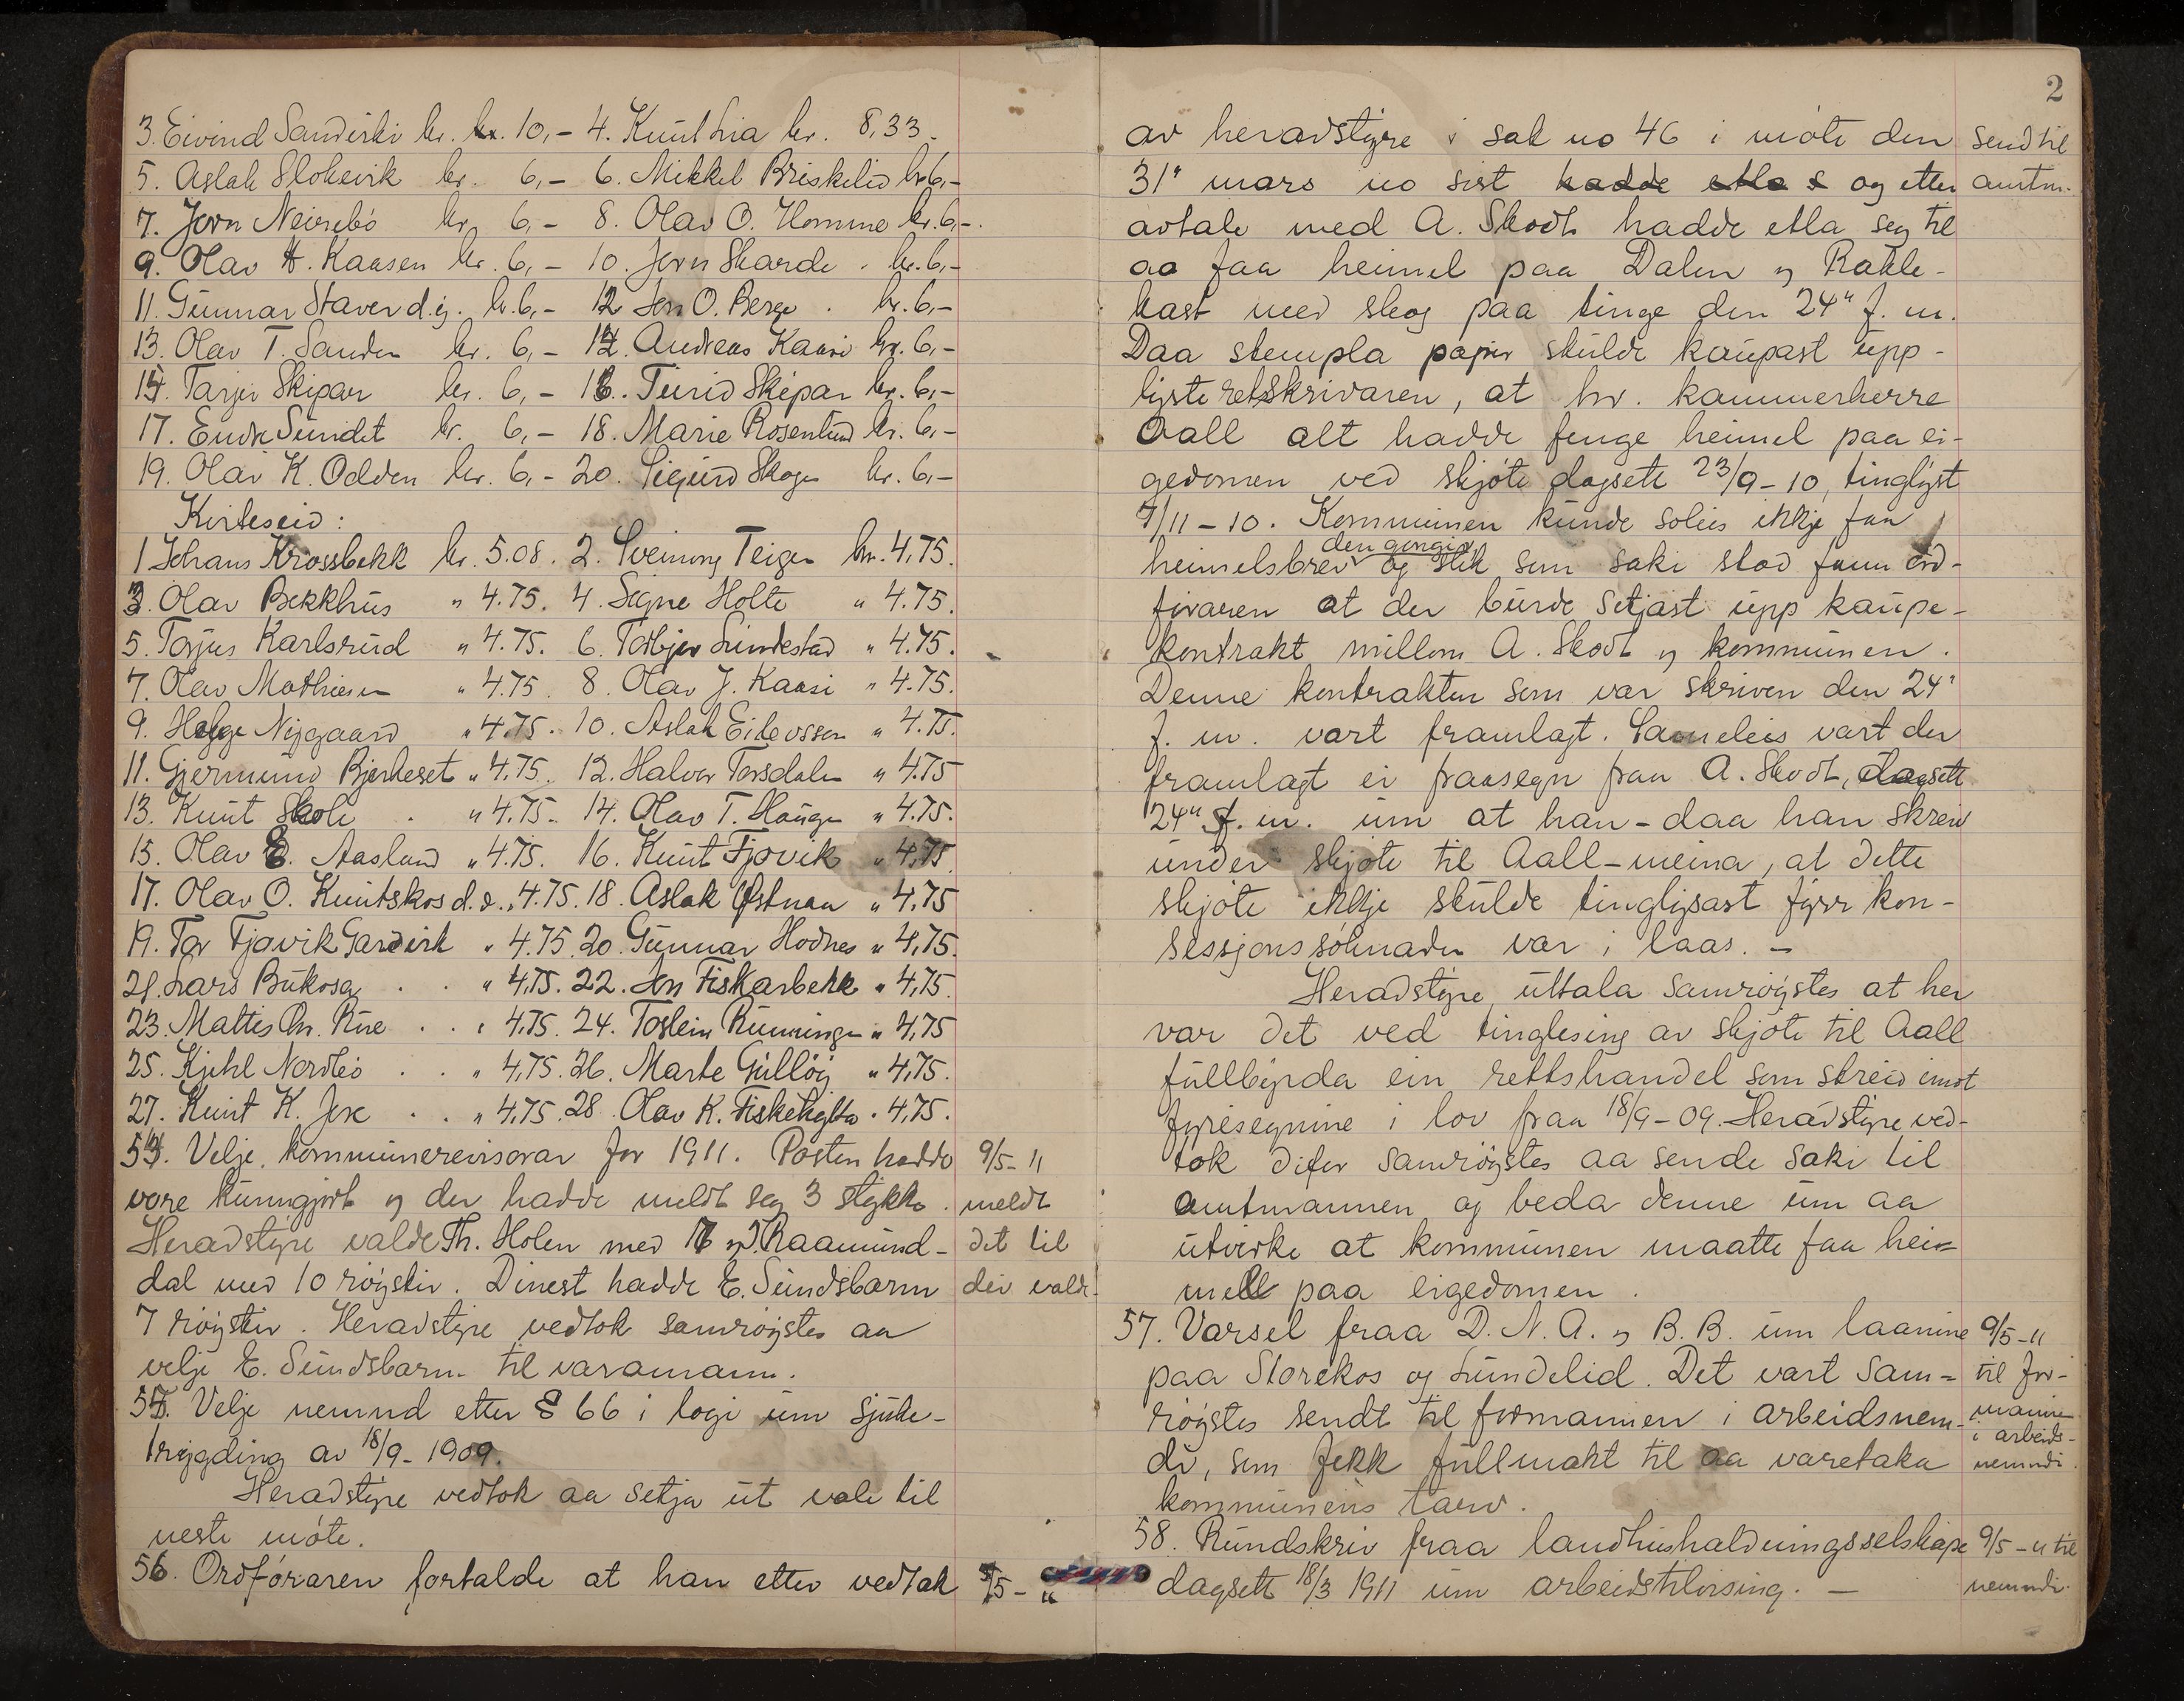 3. Eivind Sanderki kr. 10,- 4. Knut Lia kr. 8,33.
5. Aslak Slokvik kr. 6,- 6. Mikkel Briskelid kr 6,-
7. Jorn Neirebö kr. 6,- 8. Olav O. Homme kr. 6,-.
9. Olav H. Kaasen kr. 6,- 10. Jorn Skarde . kr. 6,-
11. Gunnar Staver d.y. kr. 6,- 12 Jon O. Berge . kr. 6,-
13. Olav T. Sanden kr. 6,- 14. Andreas Kaasi kr. 6,-
15. Tarjei Skipar kr. 6,- 16. Turid Skipar kr. 6,-
17. Endre Sundet kr. 6,- 18. Marie Rosenlund kr. 6,-
19. Olav K. Odden kr. 6,- 20. Sigurd Skogen kr. 6,-
Kviteseid:
1 Johans Krossbekk kr. 5.08. 2. Sveinung Teigen kr. 4,75.
3. Olav Bekkhus " 4.75. 4. Signe Holte " 4.75.
5. Torjus Karlsrud " 4.75. 6. Torbjør Lundestad " 4.75.
7. Olav Mathisen " 4.75. 8. Olav J. Kaasi " 4.75.
9. Helge Nygaard " 4.75. 10. Aslak Eilevssen " 4.75.
11. Gjermund Bjørkeset " 4.75. 12. Halvor Torsdalen " 4.75
13. Knut Skoli . " 4.75. 14. Olav T. Haugen " 4.75.
15. Olav E. Aasland " 4.75. 16. Knut Fjovik " 4,75
17. Olav O. Kuntskos d.e. " 4.75. 18. Aslak Østnaa " 4,75
19. Tor Fjovik Gardvik " 4.75 20. Gunnar Hodnes " 4,75.
21. Lars Bukosa . . " 4,75. 22. Jon Fiskarbekk " 4,75.
23. Mattis Chr. Rue . . " 4,75. 24. Toslein Runningen " 4,75
25. Kjetil Nordbö . . " 4,75. 26. Marte Gulløy " 4,75.
27. Knut K. Jore . . " 4,75. 28. Olav K. Fiskekjlta " 4,75.
54. Velje kommunerevisorar for 1911. Posten hadde 9/5-11
vore kunngjort og der hadde meldt seg 3 stykke. meldt
Heradstyre valde Th. Holen med 16 og J. Raamund- det til
dal med 10 røyster. Dinest hadde E. Sundsbarm dei valde.
7 røyster. Heradstyre vedtok samrøystes aa
velje E. Sundsbarm til varamann.
55. Velje nemnd etter § 66 i logi um sjuke-
trygding av 18/9-1909.
Heradstyre vedtok aa setja ut vale til
neste møte.
56. Ordføraren fortalde at han etter vedtak 9/5-11
2
av heradstyre i sak no 46 i møte den send til
31" mars no sist hadde etla s og etter amtm.
avtale med A. Skodt hadde etla seg til
aa faa heimel paa Dalen og Rakle-
kast med skog paa tinge den 24" f. m.
Daa stempla papir skulde kaupast upp-
lyste retskrivaren, at hr. kammerherre
Aall alt hadde fenge heimel paa ei-
gedomen ved skjøte dagsett 23/9-10, tinglyst
7/11-10. Kommunen kunde soleis ikkje faa
den gongin
heimelsbrev og slik som saki stod fann ord-
føraren at der burde setjast upp kaupe-
kontrakt millom A. Skodt og kommunen.
Denne kontrakten som var skriven den 24"
f. m. vart framlagt. Sameleis vart der
framlagt ei fraasegn fraa A. Skodt, dagsett
24" f. m. um at han - daa han skreiv
under skjøte til Aall - meina, at dette
skjøte ikkje skulde tinglysast fyrr kon-
sessjonssøknaden var i laas. -
Heradstyre uttala samrøystes at her
var det ved tinglesing av skjøte til Aall
fullbyrda ein rettshandel som streid imot
fyresegnine i lov fraa 18/9-09. Heradstyre ved-
tok difor samrøystes aa sende saki til
amtmannen og beda denne um aa
utvirke at kommunen maatte faa hei-
mel paa eigedomen.
57. Varsel fraa D. N. A. og B. B. um laanine 9/5-11
paa Storekos og Lundelid. Det vart sam- til for-
røystes sendt til formannen i arbeidsnem- manne
i arbeids-
di, som fekk fullmakt til aa varetaka nemndi.
kommunens tarv.
58. Rundskriv fraa landhushaldningsselskape 9/5-11 til
dagsett 18/3 1911 um arbeidstilvising. - nemndi.